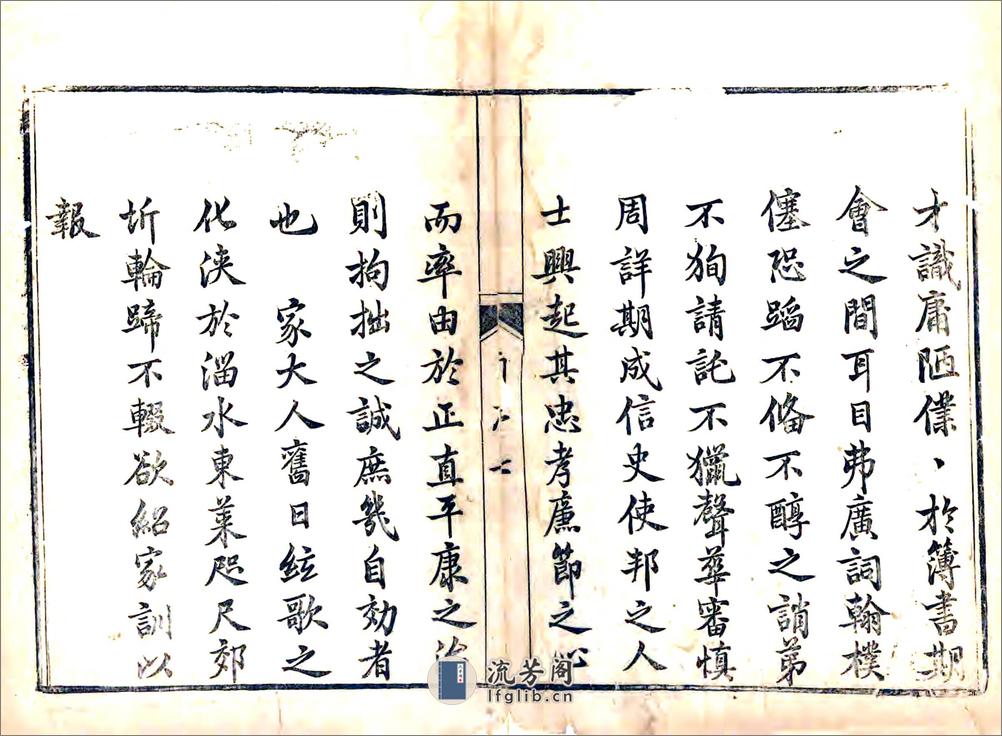 才識庸陋僕、於簿書期
會之間耳目弗廣詞翰樸
僿恐蹈不脩不醇之誚第
不狥請託不獵聲華審慎
周詳期成信史使邦之人
士興起其忠孝廉節之心
而率由於正直平康之治
則拘拙之誠庶幾自効者
也　家大人舊日絃歌之
化浹於淄水東萊咫尺郊
圻輪蹄不輟欲紹家訓以
報
七
流芳阁
lfglib.cn